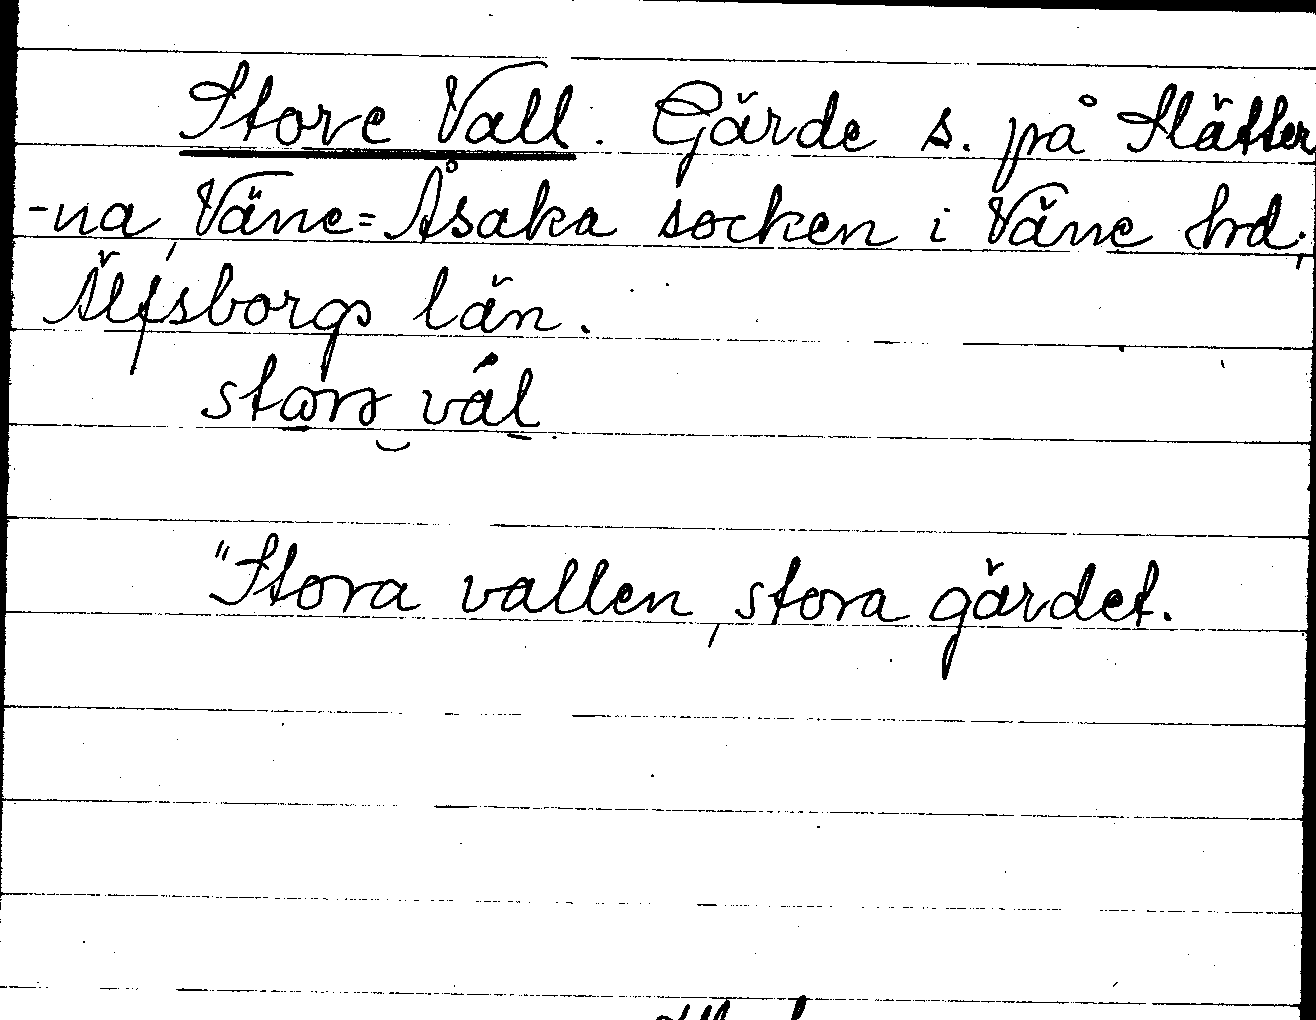 Store Vall. Gärde s. på Slätter
-na, Väne=Åsaka socken i Väne hd;
Älfsborgs län.
"Stora vallen, stora gärdet.